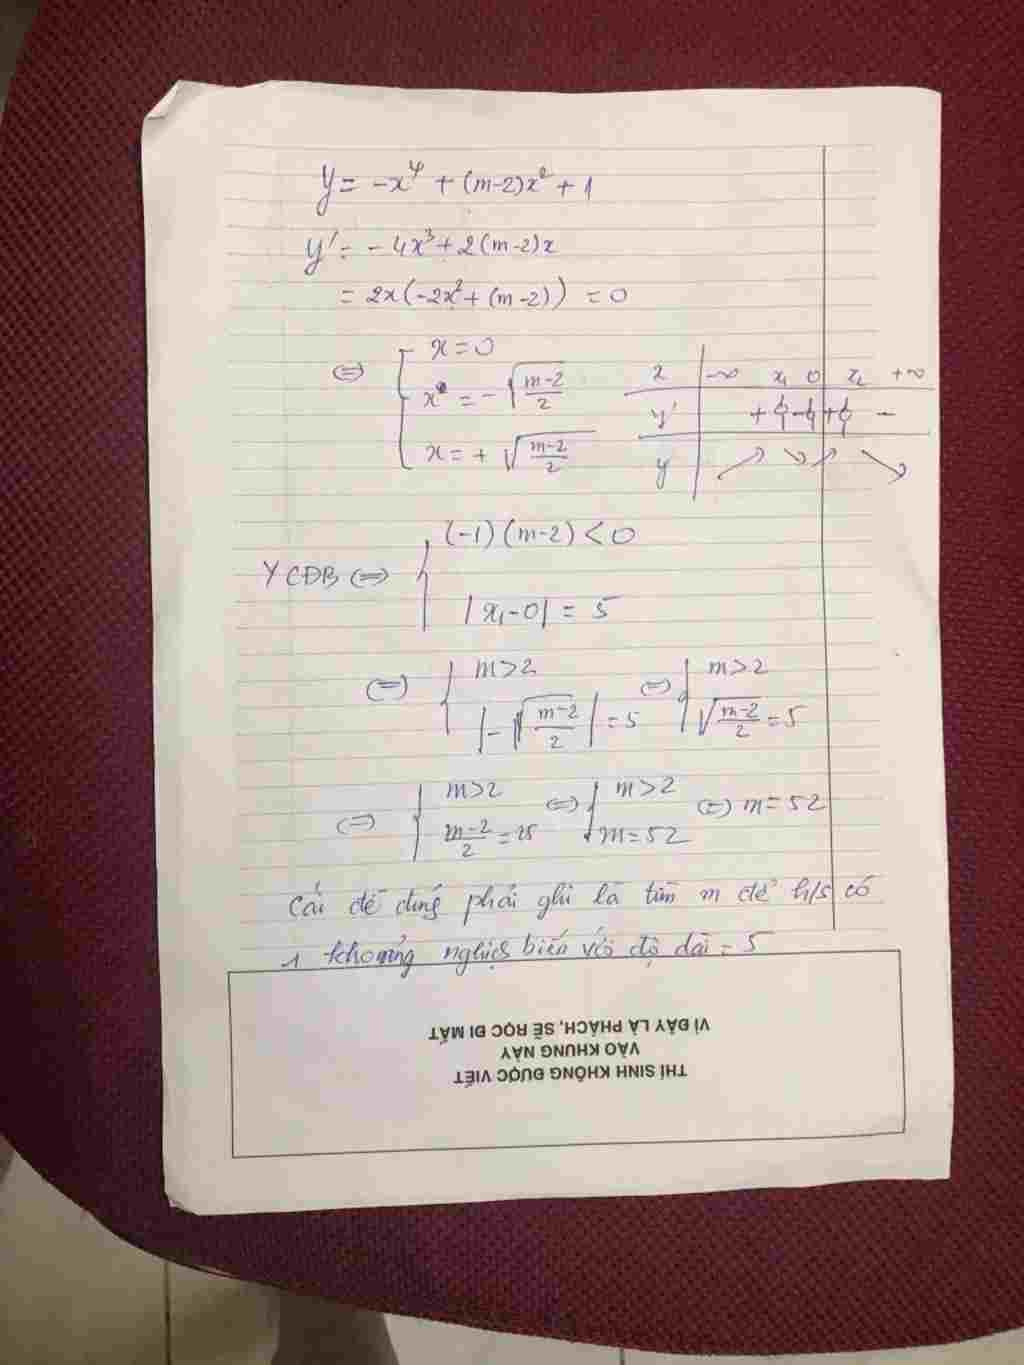 y = -x⁴ + (m-2)x² + 1
y' = -4x³ + 2(m-2)x
= 2x(-2x² + (m-2)) = 0
⇔ [ x = 0
x = -√((m-2)/2)
x = +√((m-2)/2)
x | -∞ x₁ 0 x₂ +∞
y' | + 0 - 0 + 0 -
y | ↗ ↘ ↗ ↘
YCĐB ⇔ { (-1)(m-2) < 0
|x₁-0| = 5
⇔ { m>2 ⇔ { m>2
|-√((m-2)/2)| = 5 √((m-2)/2) = 5
⇔ { m>2 ⇔ { m>2 ⇔ m = 52
(m-2)/2 = 25 m = 52
Cái đề đúng phải ghi là tìm m để h/s có
1 khoảng nghịch biến với độ dài = 5
THÍ SINH KHÔNG ĐƯỢC VIẾT
VÀO KHUNG NÀY
VÌ ĐÂY LÀ PHÁCH, SẼ RỌC ĐI MẤT